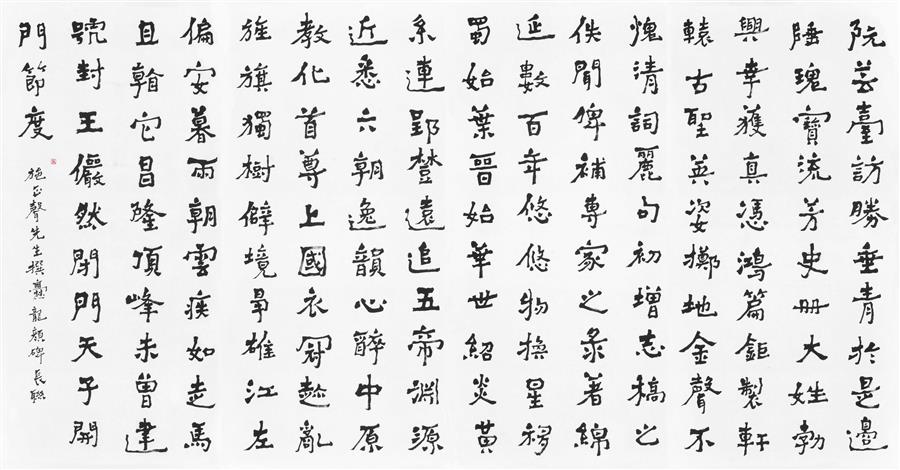 阮芸臺訪勝垂青於是邊
陲瑰寶流芳史册大姓勃
興幸獲真憑鴻篇鉅製軒
轅古聖英姿擲地金聲不
愧清詞麗句初增志稿之
佚聞俾補專家之彔著綿
延數百年悠悠物換星移
蜀始葉晉始華世紹炎黄
系連郢楚遠追五帝淵源
近悉六朝逸韻心醉中原
教化首尊上國衣冠亂
旌旗獨樹僻境爭雄江左
偏安暮雨朝雲疾如走馬
且它昌隆頂峰未曾建
號封王儼然閉門天子開
門節度
施正聲先生撰爨龍顔碑長聯